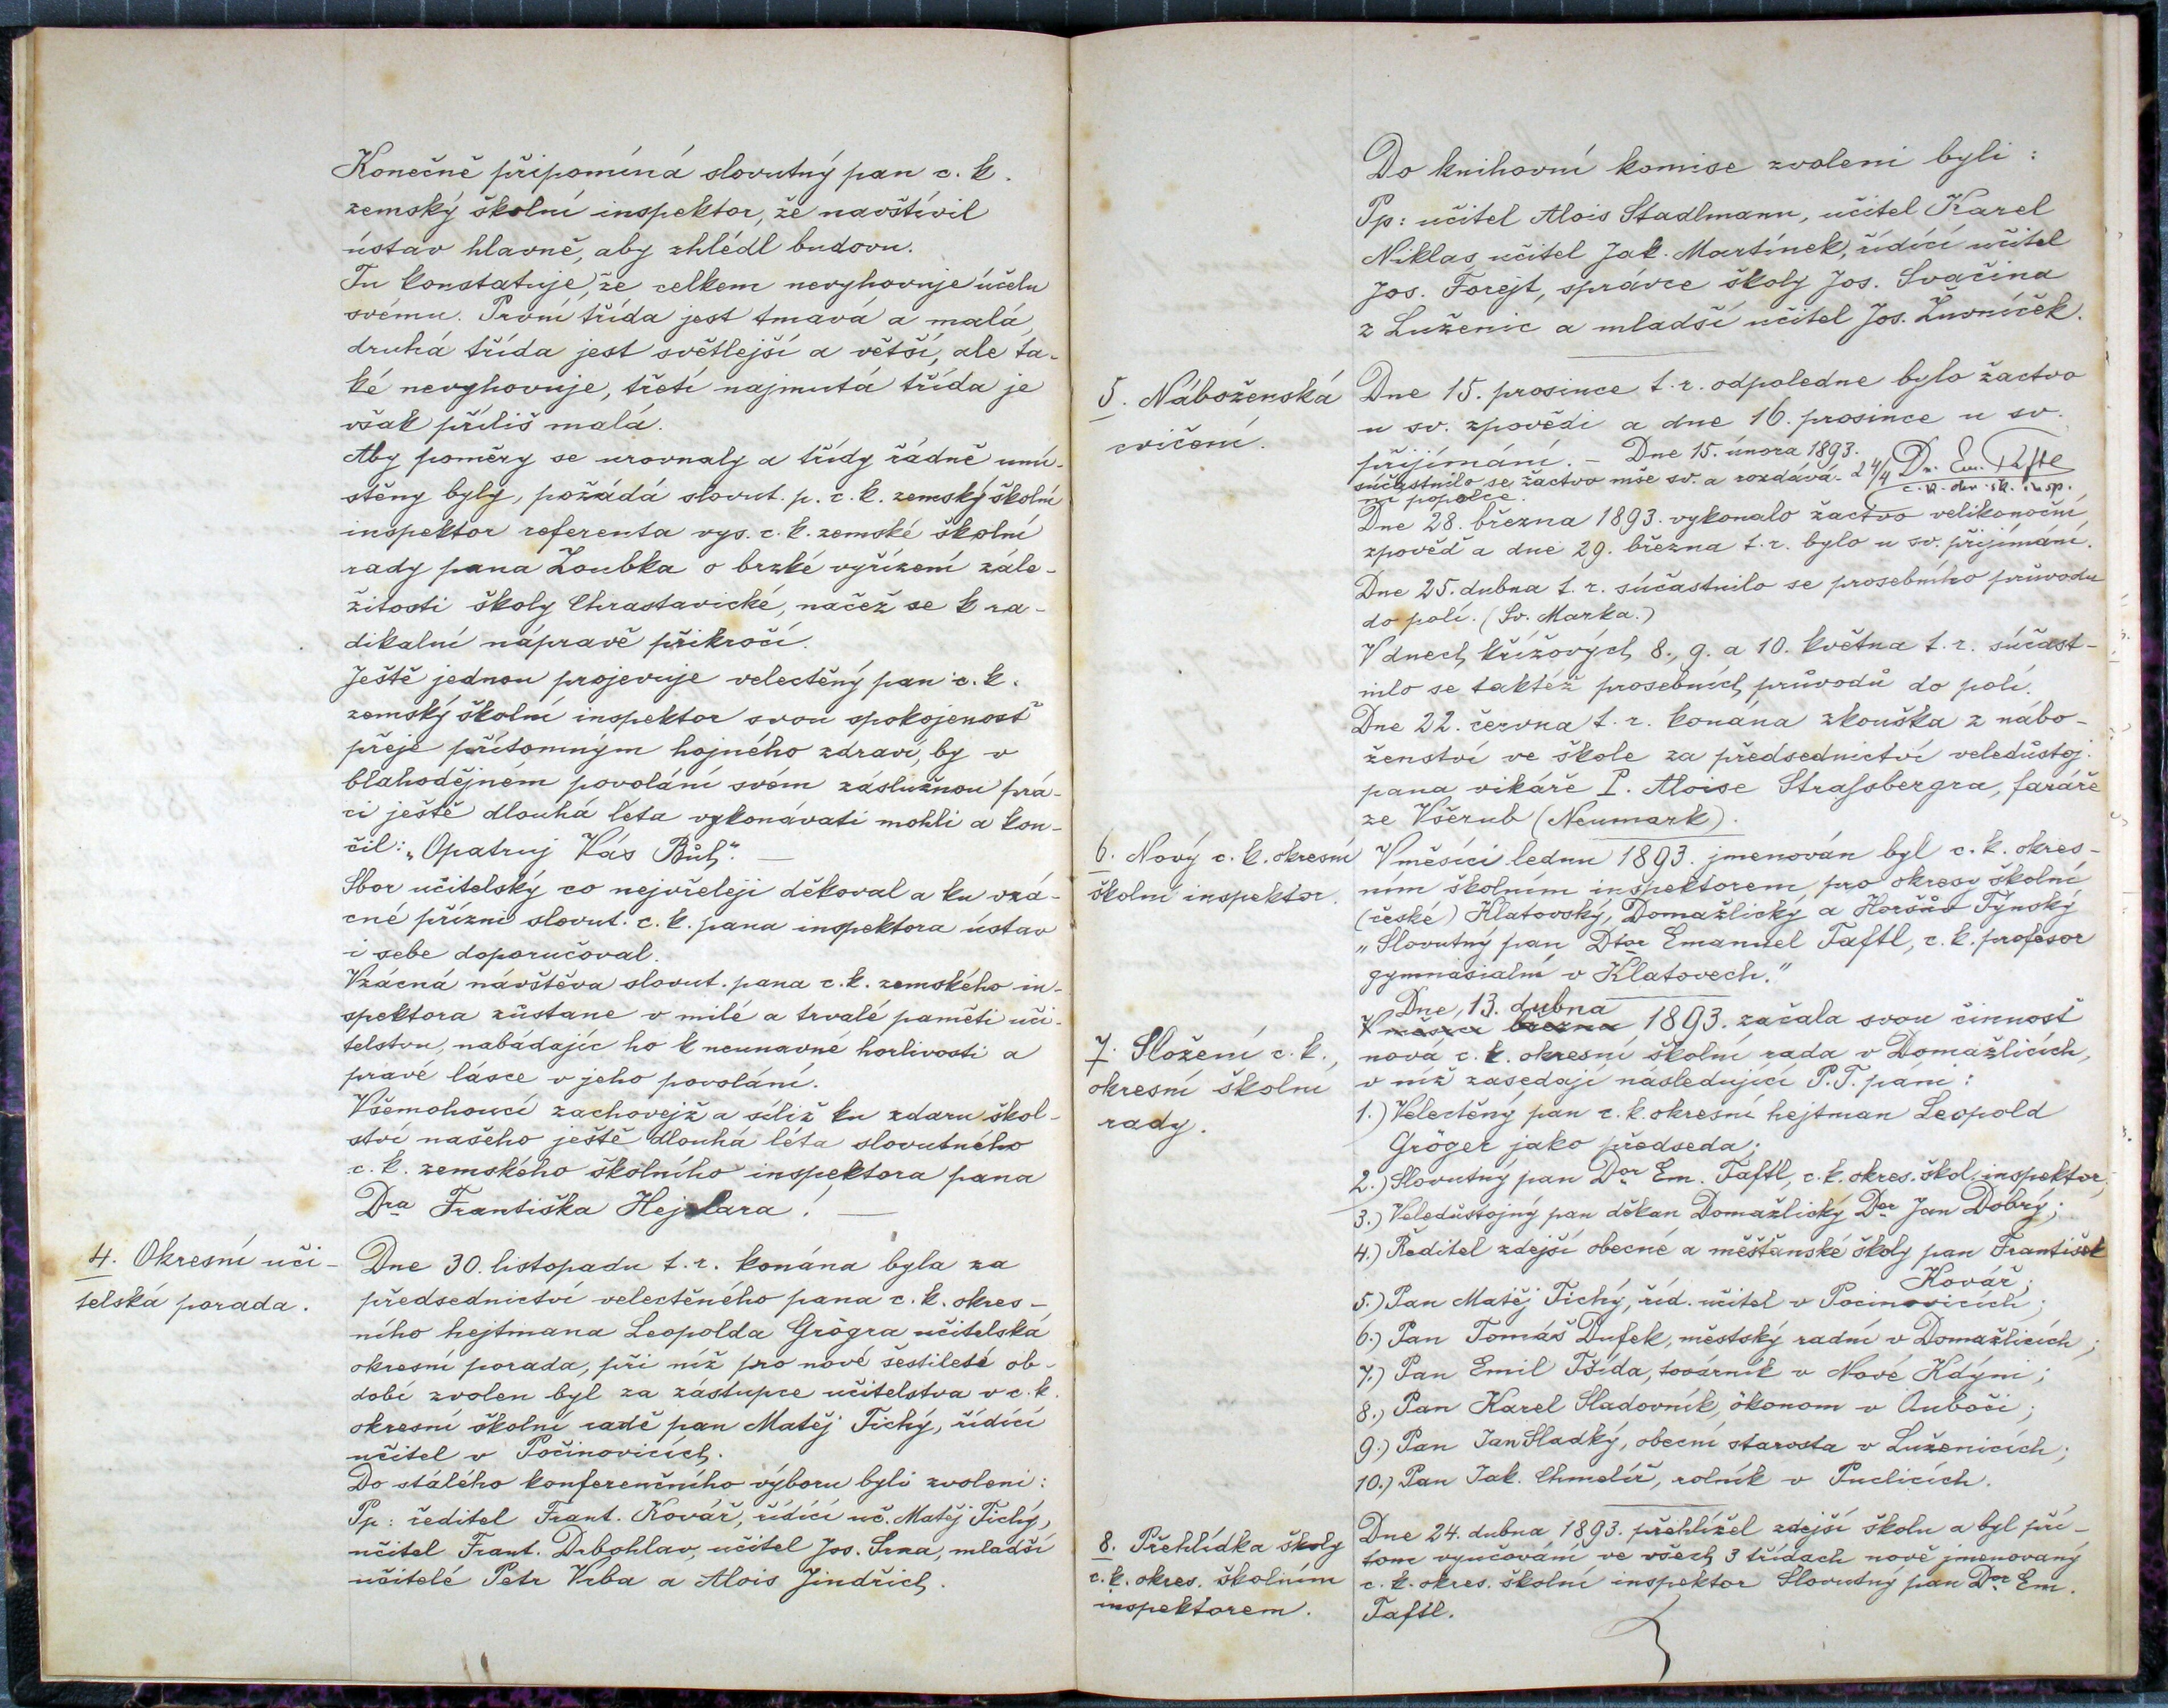 Konečně připomíná slovutný pan c. k.
zemský školní inspektor, že navštívil
ústav hlavně, aby zhlédl budovu.
Tu konstatuje, že celkem nevyhovuje účelu
svému. První třída jest tmavá a malá,
druhá třída jest světlejší a větší, ale ta-
ké nevyhovuje, třetí najmutá třída je
však příliš malá.
Aby poměry se urovnaly a třídy řádně umí-
stěny byly, požádá slovut. p. c. k. zemský školní
inspektor referenta vys. c. k. zemské školní
rady pana Zoubka o brzké vyřízení zále-
žitosti školy Chrastavické, načež se k ra-
dikalní nápravě přikročí.
Ještě jednou projevuje velectěný pan c. k.
zemský školní inspektor svou spokojenosť
přeje přítomným hojného zdraví, by v
blahodějném povolání svém záslužnou prá-
ci ještě dlouhá léta vykonávati mohli a kon-
čil: „Opatruj Vás Bůh“. —
Sbor učitelský co nejvřeleji děkoval a ku vzá-
cné přízni slovut. c. k. pana inspektora ústav
i sebe doporučoval.
Vzácná návštěva slovut. pana c. k. zemského in-
spektora zůstane v milé a trvalé paměti uči-
telstvu, nabádajíc ho k neunavné horlivosti a
pravé lásce v jeho povolání.
Všemohoucí zachovejž a siliž ku zdaru škol-
ství našeho ještě dlouhá léta slovutného
c. k. zemského školního inspektora pana
Dra Františka Hejzlara! —
4. Okresní uči-
telská porada.
Dne 30. listopadu t. r. konána byla za
předsednictví velectěného pana c. k. okres-
ního hejtmana Leopolda Grögra učitelská
okresní porada, při níž pro nové šestileté ob-
dobí zvolen byl za zástupce učitelstva v c. k.
okresní školní radě pan Matěj Tichý, řídící
učitel v Počinovicích.
Do stálého konferenčního výboru byli zvoleni:
Pp: ředitel Frant. Kovář, řídící uč. Matěj Tichý,
učitel Frant. Drbohlav, učitel Jos. Srna, mladší
učitelé Petr Vrba a Alois Jindřich.
Do knihovní komise zvoleni byli:
Pp: učitel Alois Stadlmann, učitel Karel
Niklas, učitel Jak. Martínek, řídící učitel
Jos. Forejt, správce školy Jos. Svačina
z Luženic a mladší učitel Jos. Žurníček.
5. Náboženská
cvičení.
Dne 15. prosince t. r. odpoledne bylo žactvo
u sv. zpovědi a dne 16. prosince u sv.
přijímání. – Dne 15. února 1893.
súčastnilo se žactvo mše sv. a rozdává-
ní popelce.
24/4 Dr. Em. Taftl
c. k. okr. šk. insp.
Dne 28. března 1893. vykonalo žactvo velikonoční
zpověď a dne 29. března t. r. bylo u sv. přijímání.
Dne 25. dubna t. r. súčastnilo se prosebního průvodu
do polí. (Sv. Marka.)
V dnech křížových 8., 9. a 10. května t. r. súčast-
nilo se taktéž prosebních průvodů do polí.
Dne 22. června t. r. konána zkouška z nábo-
ženství ve škole za předsednictví veledůstoj.
pana vikáře P. Aloise Straſsbergra, faráře
ze Všerub (Neumark).
6. Nový c. k. okresní
školní inspektor.
V měsíci lednu 1893. jmenován byl c. k. okres-
ním školním inspektorem pro okresy školní
(české) Klatovský, Domažlický a Horšův Týnský
„Slovutný pan Dtor Emanuel Taftl, c. k. profesor
gymnasialní v Klatovech.“
7. Složení c. k.
okresní školní
rady.
Dne 13. dubna
V měsíci března 1893. začala svou činnosť
nová c. k. okresní školní rada v Domažlicích,
v níž zasedají následující P. T. páni:
1.) Velectěný pan c. k. okresní hejtman Leopold
Gröger jako předseda;
2.) Slovutný pan Dor Em. Taftl, c. k. okres. škol. inspektor;
3.) Veledůstojný pan děkan Domažlický Dor Jan Dobrý;
4.) Ředitel zdejší obecné a měšťanské školy pan František
Kovář;
5.) Pan Matěj Tichý, říd. učitel v Pocinovicích;
6.) Pan Tomáš Dufek, městský radní v Domažlicích;
7.) Pan Emil Tšída, továrník v Nové Kdýni;
8.) Pan Karel Sladovník, ökonom v Ouboči;
9.) Pan Jan Sladký, obecní starosta v Luženicích;
10.) Pan Jak. Chmelíř, rolník v Puclicích.
8. Přehlídka školy
c. k. okres. školním
inspektorem.
Dne 24. dubna 1893. přehlížel zdejší školu a byl pří-
tom vyučování ve všech 3 třídach nově jmenovaný
c. k. okres. školní inspektor Slovutný pan Dor Em.
Taftl.